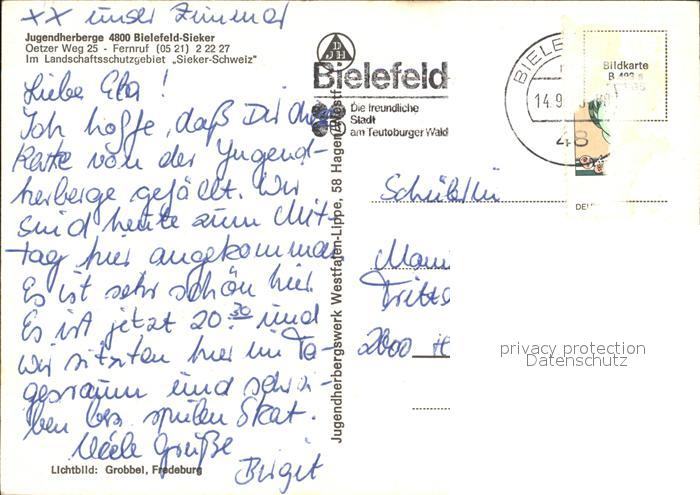 xx unser Zimmer
Jugendherberge 4800 Bielefeld-Sieker
Oetzer Weg 25 - Fernruf (05 21) 2 22 27
Im Landschaftsschutzgebiet „Sieker-Schweiz"
Liebe Ela!
Ich hoffe, daß Dir diese
Karte von der Jugend-
herberge gefällt. Wir
sind heute zum Mit-
tag hier angekommen
Es ist sehr schön hier
Es ist jetzt 20.30 und
wir sitzten hier im Ta-
gesraum und schrei-
ben bzs. spielen Skat.
Viele Grüße
Birgit
Lichtbild: Grobbel, Fredeburg
Jugendherbergswerk Westfalen-Lippe, 58 Hagen
DJH
Bielefeld
Die freundliche
Stadt
am Teutoburger Wald
BIELE
14.9
48
Bildkarte
Schülerin
2000 H
privacy protection
Datenschutz